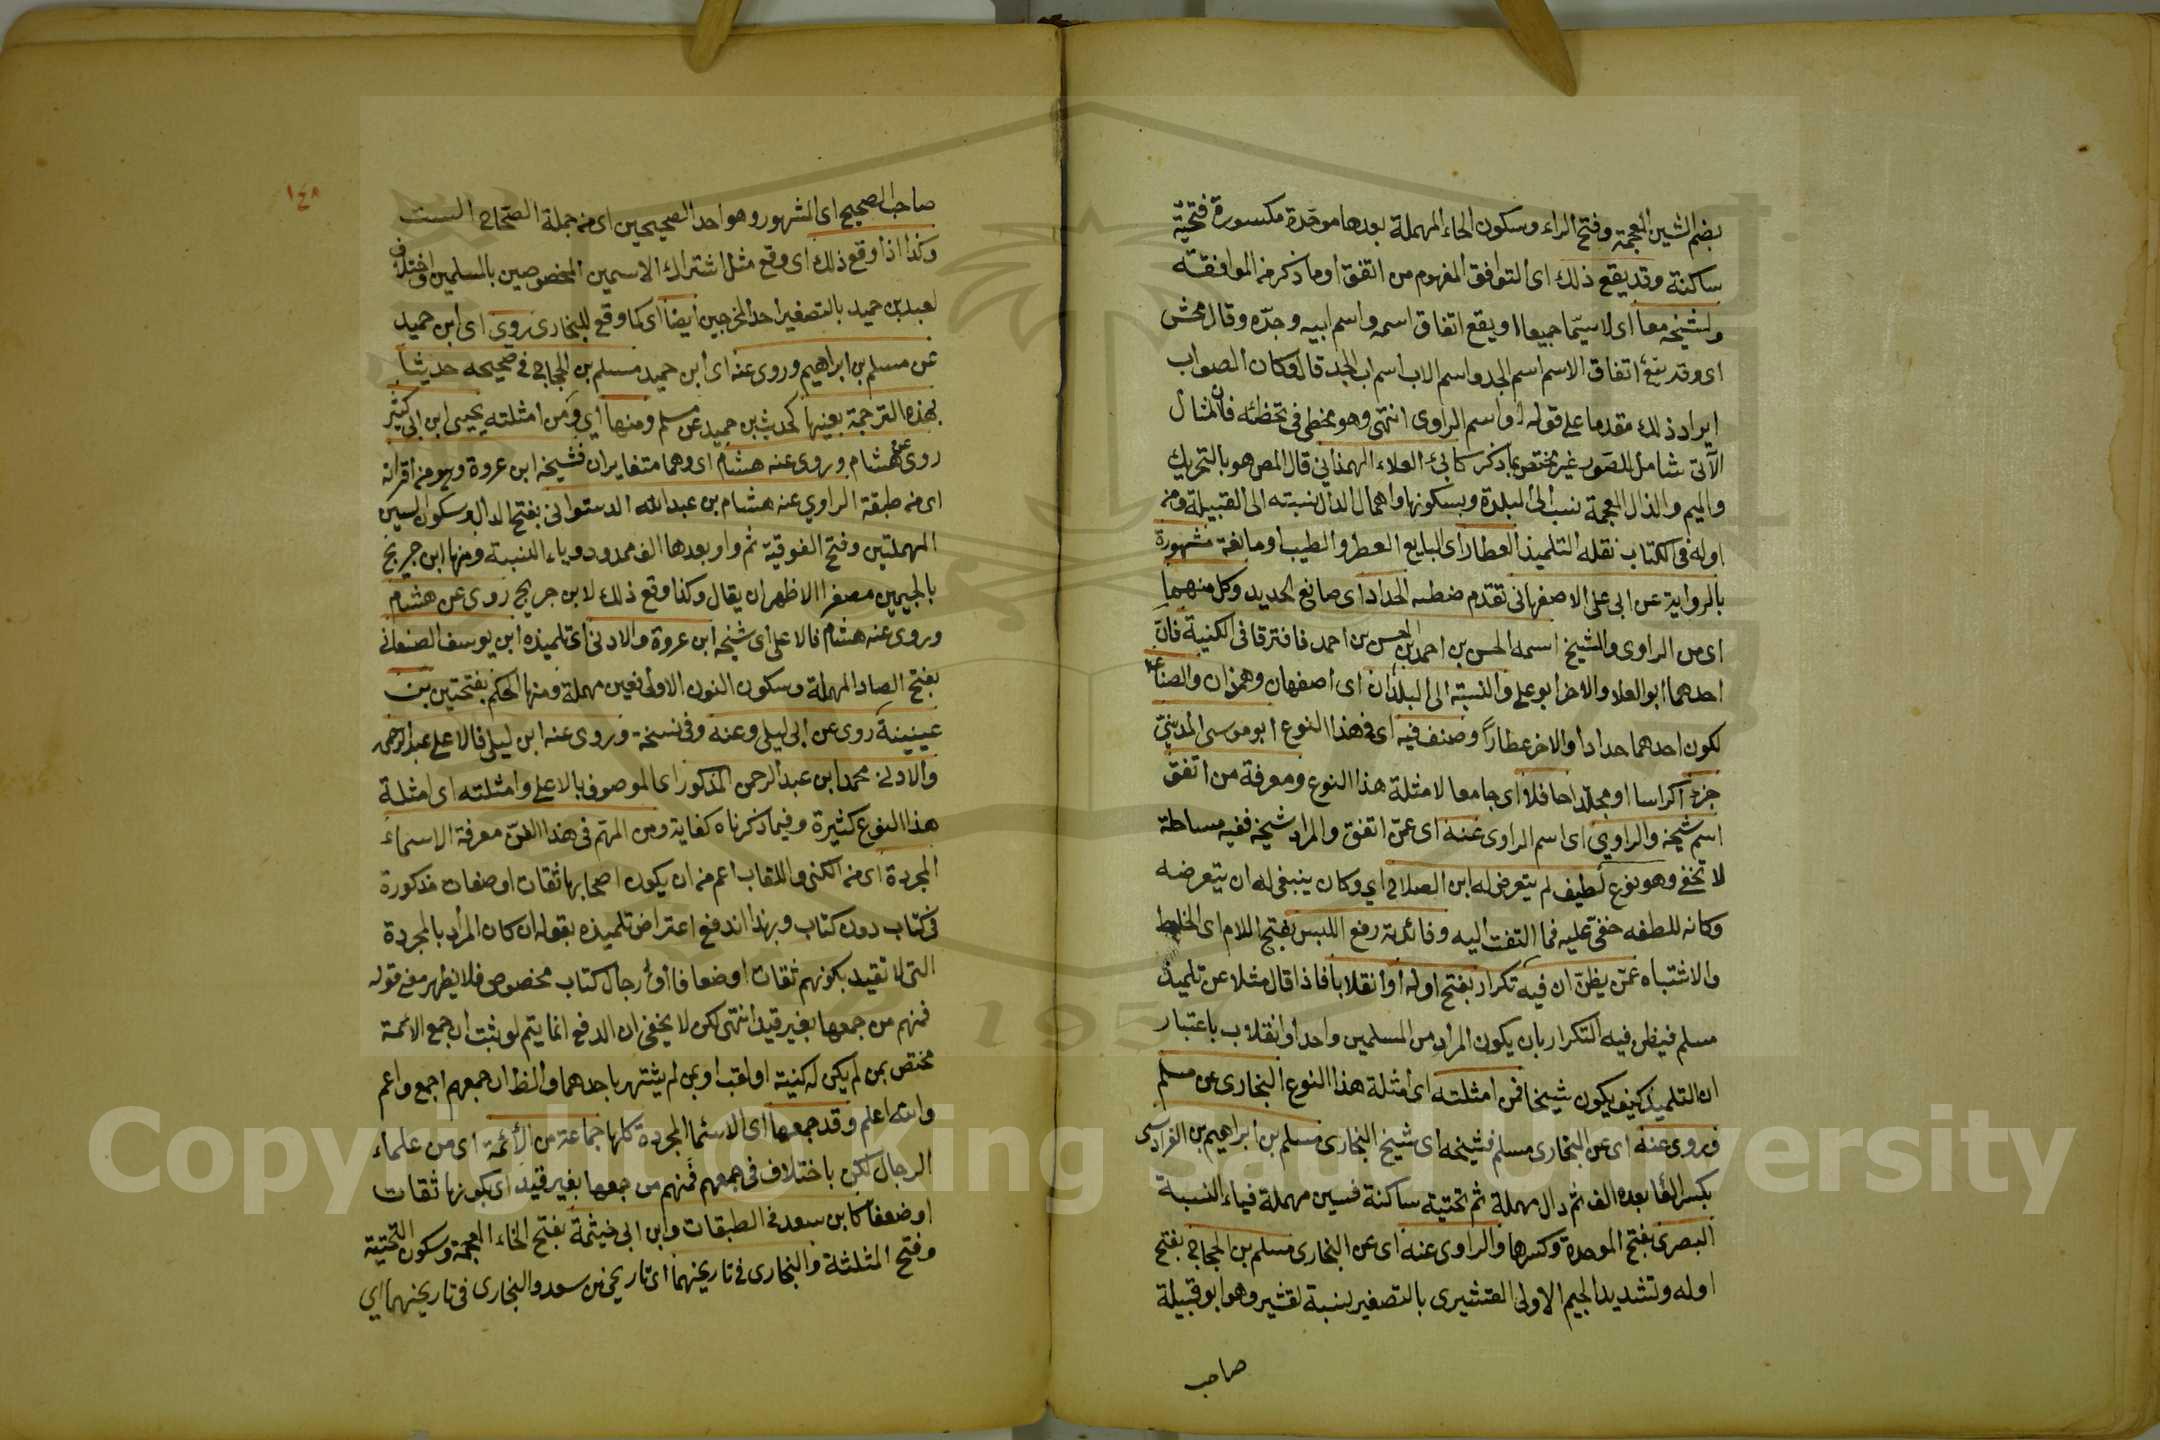 بضم الشين المعجمة وفتح الراء وسكون الحاء المهملة بعدها موحدة مكسورة فتحتية
ساكنة وقد يقع ذلك اى التوافق المفهوم من اتفق اوما ذكر من الموافقة
ولشيخه معا اى لاسيما جميعا اويقع اتفاق اسمه واسم ابيه وجده وقال محش
اى وقد يقع اتفاق الاسم اسم الجد واسم الاب اسم اب الجد قال وكان الصواب
ايراد ذلك مقدما على قوله او اسم الراوى انتهى وهو مخطئ فى تخطئه فان المثال
الآتى شامل للصور غير مختص بما ذكر كابى العلاء الهمذانى قال المص هو بالتحريك
والميم والذال المعجمة نسب الى البلدة وبسكونها واهمال الدال نسبته الى القبيلة ومنه
اوله فى الكتاب نقله التلميذ العطار اى البايع العطر والطيب اوما لغة مشهورة
بالرواية عن ابى على الاصفهانى تقدم ضطبه الحداد اى صانع الحديد وكل منهما
اى من الراوى والشيخ اسمه الحسن بن احمد بن الحسن بن احمد فافترقا فى الكنية فان
احدهما ابو العلا والاخر ابو على والنسبة الى البلدان اى اصفهان وهمذان والصناعة
لكون احدهما حدادا والاخر عطارا وصنف فيه اى فى هذا النوع ابو موسى المدينى
جزءا كراسا او مجلدا حافلا اى جامعا لامثلة هذا النوع ومعرفة من اتفق
اسم شيخه والراوى اى اسم الراوى عنه اى عمن اتفق والمراد شيخه ففيه مساحلة
لا تخفى وهو نوع لطيف لم يتعرض له ابن الصلاح اى وكان ينبغى له ان يتعرضه
وكانه للطفه خفى عليه فما التفت اليه وفائدته رفع اللبس بفتح اللام اى الخلط
والاشتباه عمن يظن ان فيه تكرار بفتح اوله او انقلابا فاذا قال مثلا عن تلميذ
مسلم فيظن فيه التكرار بان يكون المراد من المسلمين واحد او انقلاب باعتبار
ان التلميذ كيف يكون شيخا فمن امثلته اى امثلة هذا النوع البخارى عن مسلم
وروى عنه اى عن البخارى مسلم فشيخه اى شيخ البخارى مسلم بن ابراهيم بن الفراديسى
بكسر الفا بعده الف ثم دال مهملة ثم تحتية ساكنة فسين مهملة فياء النسبة
البصرى بفتح الموحدة وكسرها والراوى عنه اى عن البخارى مسلم بن الحجاج بفتح
اوله وتشديد الجيم الاولى القشيرى بالتصغير نسبة لقشير وهو ابو قبيلة
صاحب
١٤٨
صاحب الصحيح اى المشهور وهو احد الصحيحين اى من جملة الصحاح الست
وكذا اذا وقع ذلك اى وقع مثل اشتراك الاسمين المخصوصين بالمسلمين واختلاف
لعبد بن حميد بالتصغير احد المخرجين ايضا اى كما وقع للبخارى روى اى ابن حميد
عن مسلم بن ابراهيم وروى عنه اى ابن حميد مسلم بن الحجاج فى صحيحه حديثا
بهذه الترجمة بعينها كحديث بن حميد عن مسلم ومنها اى ومن امثلته يحيى ابن ابى كثير
روى عن هشام وروى عنه هشام اى وهما متغايران فشيخه ابن عروة وهو من اقرانه
اى من طبقة الراوي عنه هشام بن عبد الله الدستوائى بفتح الدال وسكون السين
المهملتين وفتح الفوقية ثم واو بعدها الف ممدود وياء النسبة ومنها ابن جريج
بالجيمين مصغرا الاظهر ان يقال وكذا وقع ذلك لابن جريج روى عن هشام
وروى عنه هشام فالاعلى اى شيخه ابن عروة والادنى اى تلميذه ابن يوسف الصنعانى
بفتح الصاد المهملة وسكون النون الاولى فعين مهملة ومنها الحكم بفتحتين بن
عيينة روى عن ابى ليلى وعنه وفى نسخة وروى عنه ابن ليلى فالاعلى عبد الرحمن
والادنى محمد ابن عبد الرحمن المذكور اى الموصوف بالاعلى وامثلته اى امثلة
هذا النوع كثيرة وفيما ذكرناه كفاية ومن المهم فى هذا الفن معرفة الاسماء
المجردة اى من الكنى واللقاب اعم من ان يكون اصحابها ثقات او ضعفاء مذكورة
فى كتاب دون كتاب وبهذا اندفع اعتراض تلميذه بقوله ان كان المراد بالمجردة
التى لا تقيد بكونهم ثقات او ضعافا او رجال كتاب مخصوص فلا يظهر معنى قوله
فمنهم من جمعها بغير قيد انتهى لكن لا يخفى ان الدفع انما يتم لو ثبت ان جمع الائمة
مختص بمن لم يكن له كنية او لقب او بمن لم يشتهر باحدهما والظ ان جمعهم اجمع واعم
والله اعلم وقد جمعها اى الاسماء المجردة كلها جماعة من الأئمة اى من علماء
الرجال لكن باختلاف فى جمعهم فمنهم من جمعها بغير قيد اى بكونها ثقات
او ضعفا كابن سعد فى الطبقات وابن ابى خيثمة بفتح الخاء المعجمة وسكون التحتية
وفتح المثلثة والبخارى فى تاريخهما اى تاريخى بن سعد والبخارى فى تاريخهما اى
Copyright © King Saud University
1957